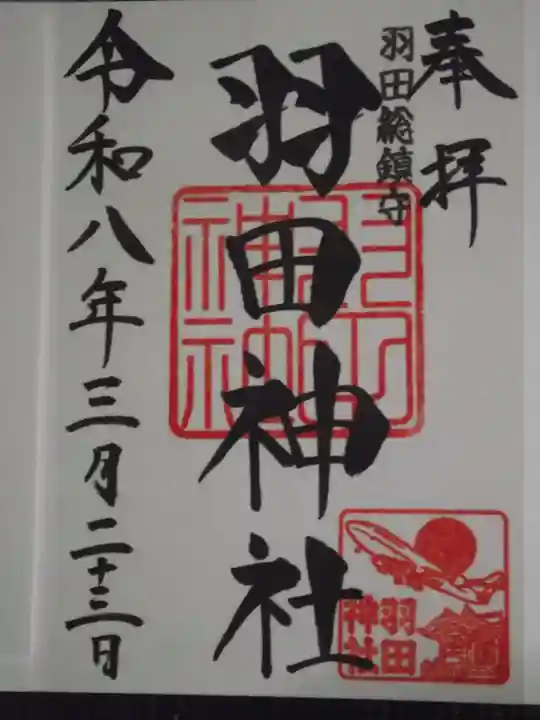 奉拝
羽田総鎮守
羽田神社
令和八年三月二十三日
羽田
神社